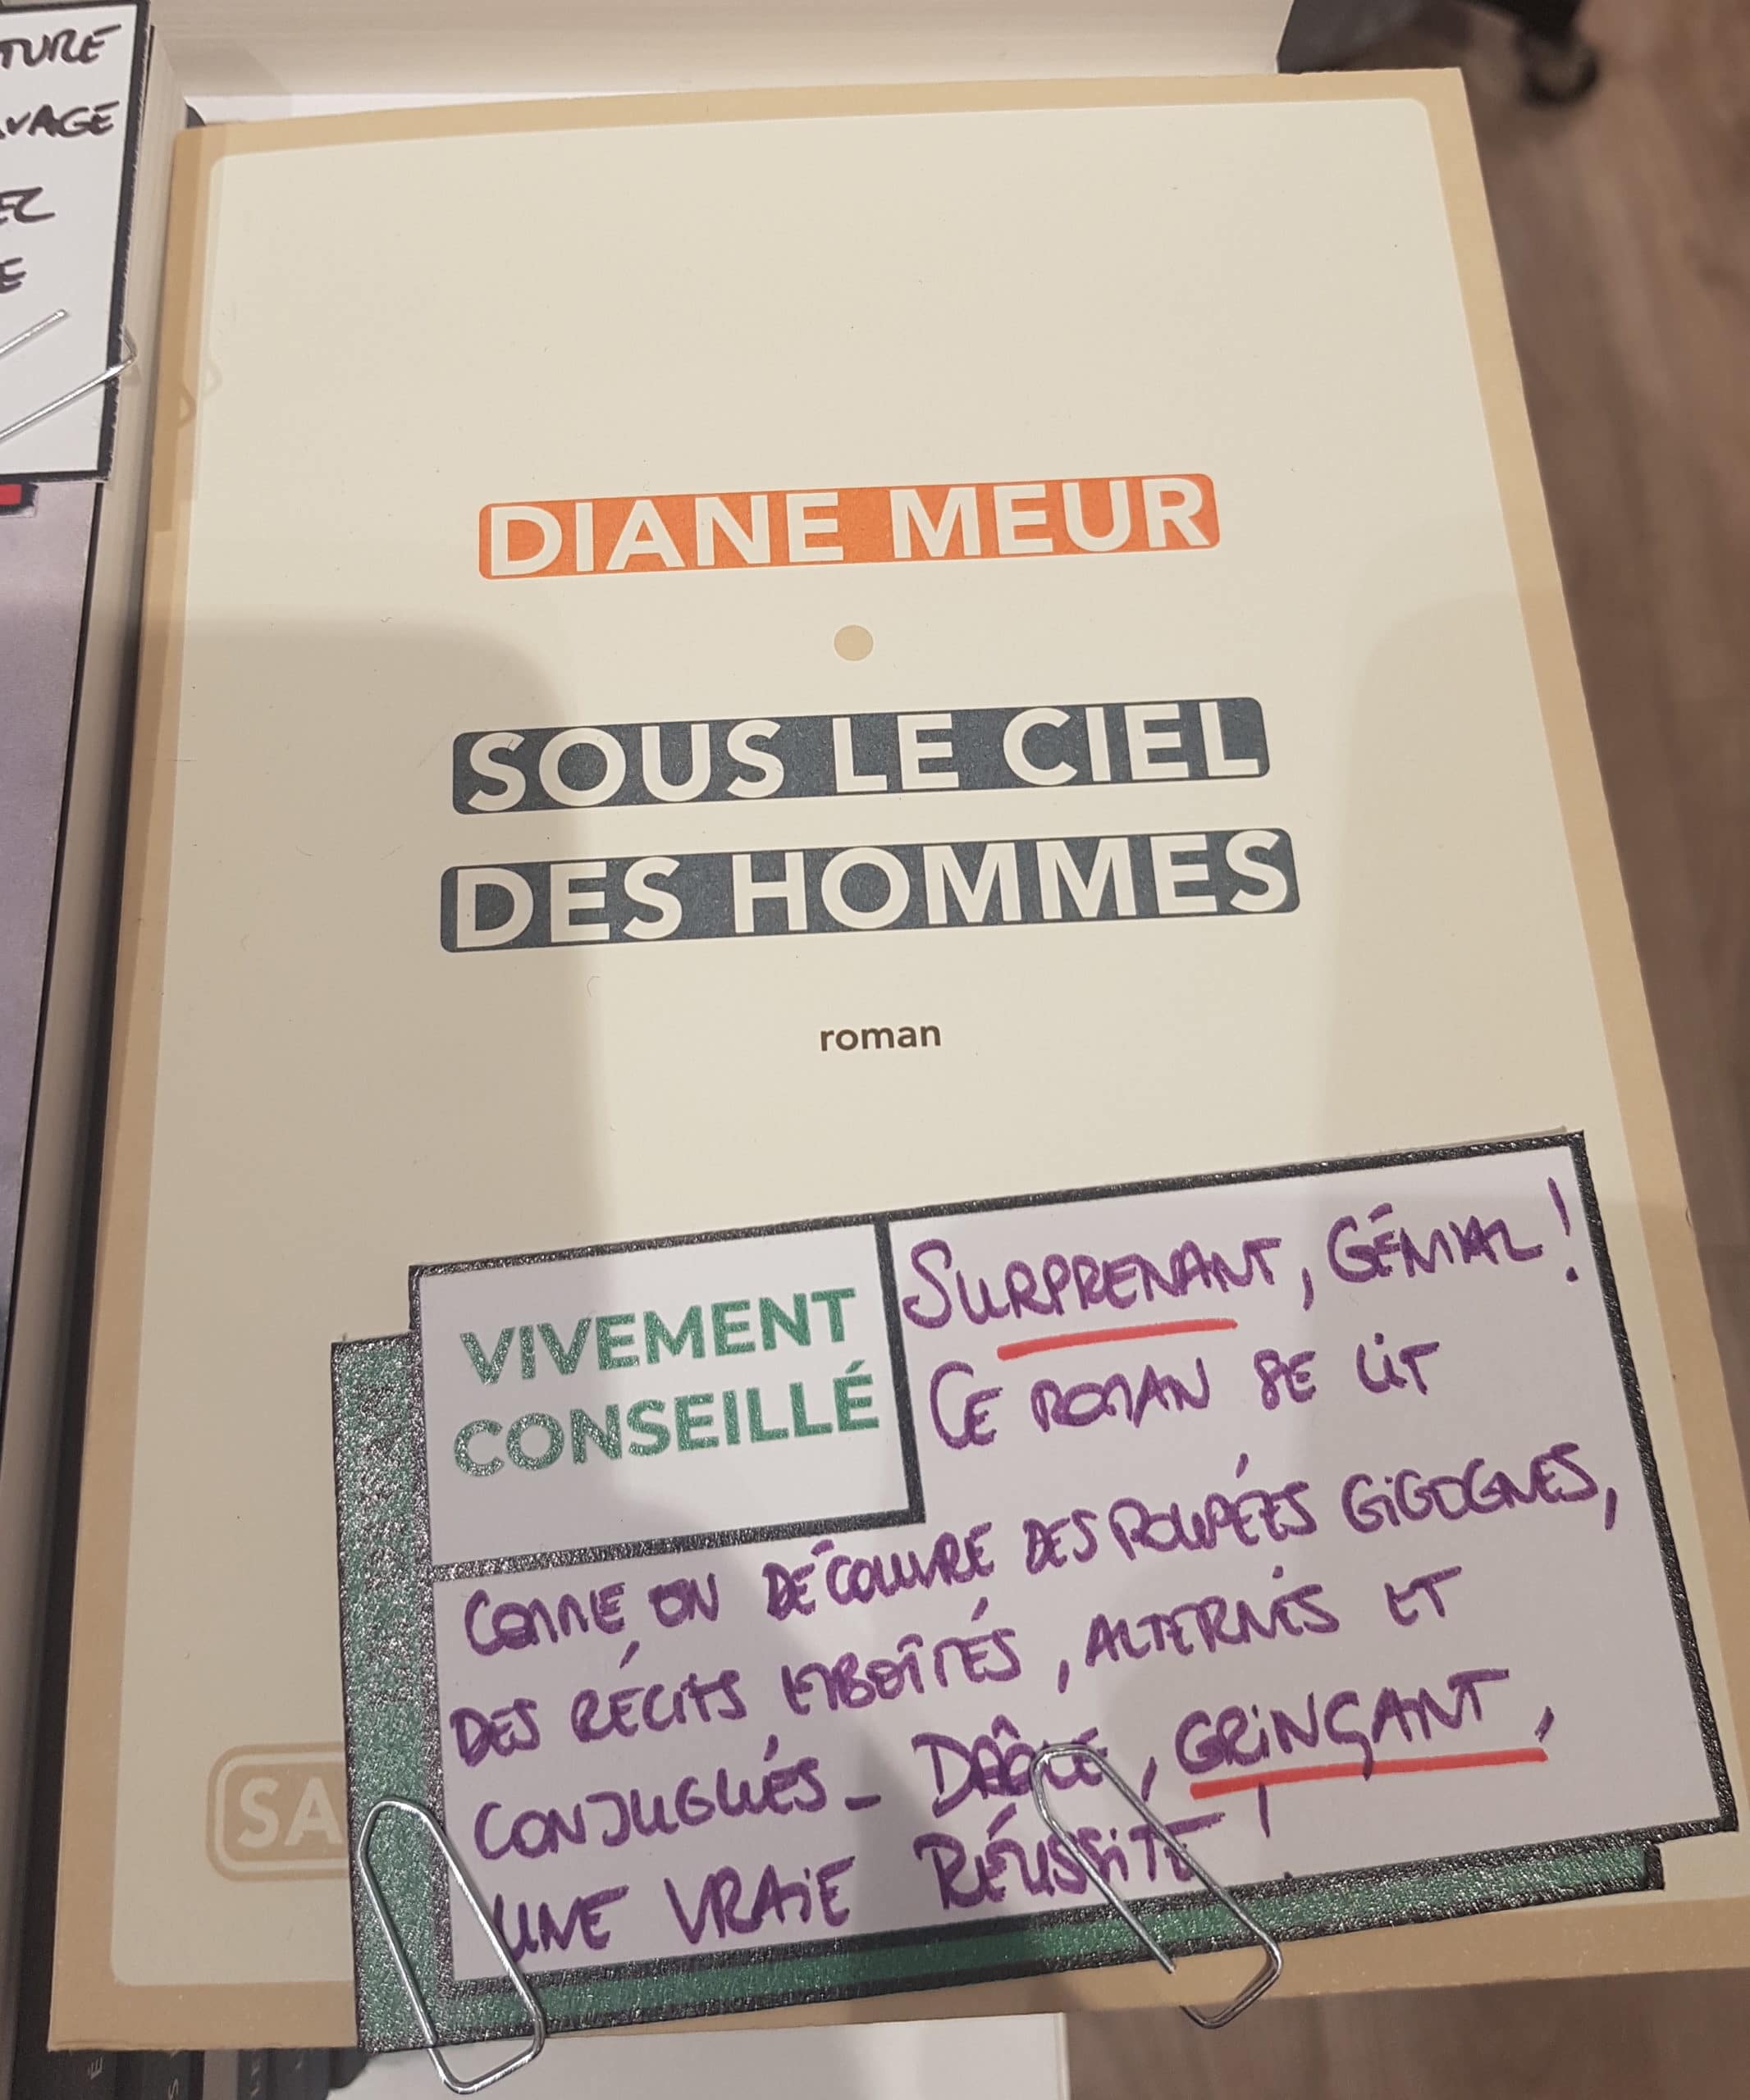 TURE
AVAGE
EZ
E
DIANE MEUR
SOUS LE CIEL
DES HOMMES
roman
VIVEMENT
CONSEILLÉ
SURPRENANT, GÉNIAL !
CE ROMAN SE LIT
COMME ON DÉCOUVRE DES POUPÉES GIGOGNES,
DES RÉCITS EMBOÎTÉS, ALTERNÉS ET
CONJUGUÉS_ DRÔLE, GRINÇANT,
UNE VRAIE RÉUSSITE !
SA